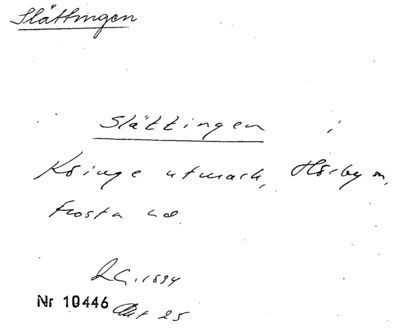 Slättingen
Slättingen i
Kringe utmark, Hörby sn,
Frosta hd.
1894
Nr 10446 Akt 25